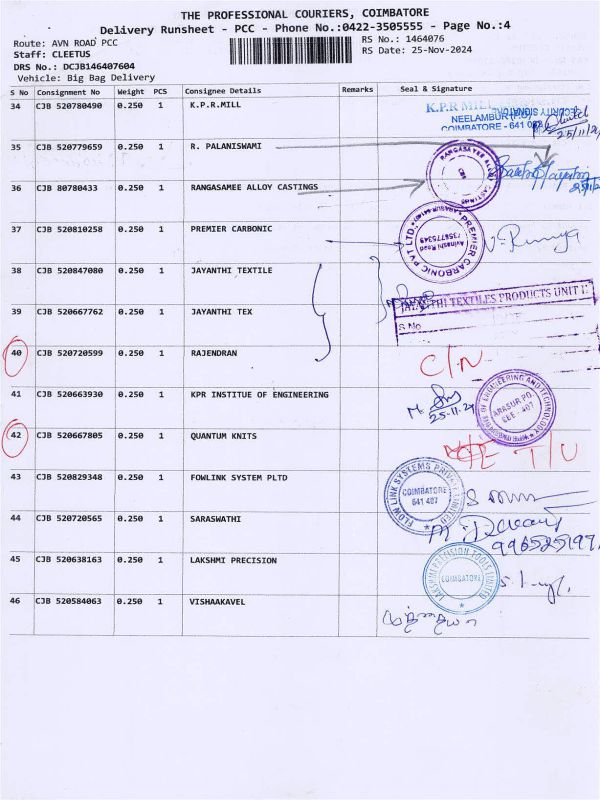 THE PROFESSIONAL COURIERS, COIMBATORE
Delivery Runsheet - PCC - Phone No.:0422-3505555 - Page No.:4
Route: AVN ROAD PCC
RS No.: 1464076
Staff: CLEETUS
RS Date: 25-Nov-2024
DRS No.: DCJB146407604
Vehicle: Big Bag Delivery
S No Consignment No Weight PCS Consignee Details Remarks Seal & Signature
34 CJB 520780490 0.250 1 K.P.R.MILL
K.P.R MILL
NEELAMBUR (P.O)
COIMBATORE - 641 062
SECURITY SIGNATURE
35 CJB 520779659 0.250 1 R. PALANISWAMI
36 CJB 80780433 0.250 1 RANGASAMEE ALLOY CASTINGS
RANGASAMEE ALLOY CASTINGS
37 CJB 520810258 0.250 1 PREMIER CARBONIC
PREMIER CARBONIC PVT LTD.
Avinashi Road
7358775349
38 CJB 520847080 0.250 1 JAYANTHI TEXTILE
JAYANTHI TEXTILES PRODUCTS UNIT II
S No
39 CJB 520667762 0.250 1 JAYANTHI TEX
40 CJB 520720599 0.250 1 RAJENDRAN
C/N
41 CJB 520663930 0.250 1 KPR INSTITUE OF ENGINEERING
25-11-24
ENGINEERING AND TECHNOLOGY
ARASUR PO.
42 CJB 520667805 0.250 1 QUANTUM KNITS
T/U
43 CJB 520829348 0.250 1 FOWLINK SYSTEM PLTD
FLOW LINK SYSTEMS PRIVATE LIMITED
COIMBATORE
641 407
44 CJB 520720565 0.250 1 SARASWATHI
45 CJB 520638163 0.250 1 LAKSHMI PRECISION
LAKSHMI PRECISION TOOLS LIMITED
COIMBATORE
46 CJB 520584063 0.250 1 VISHAAKAVEL